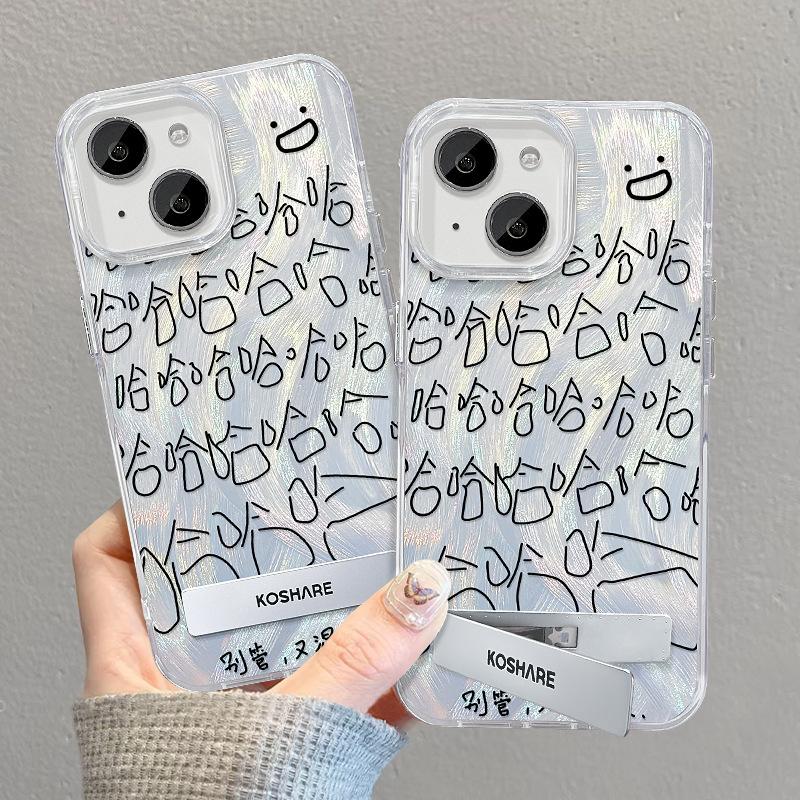 哈哈哈
哈哈哈哈哈
哈哈哈哈哈哈
哈哈哈哈哈
哈哈哈
KOSHARE
别管，又
哈哈哈
哈哈哈哈哈
哈哈哈哈哈哈
哈哈哈哈哈
哈哈哈
KOSHARE
别管，